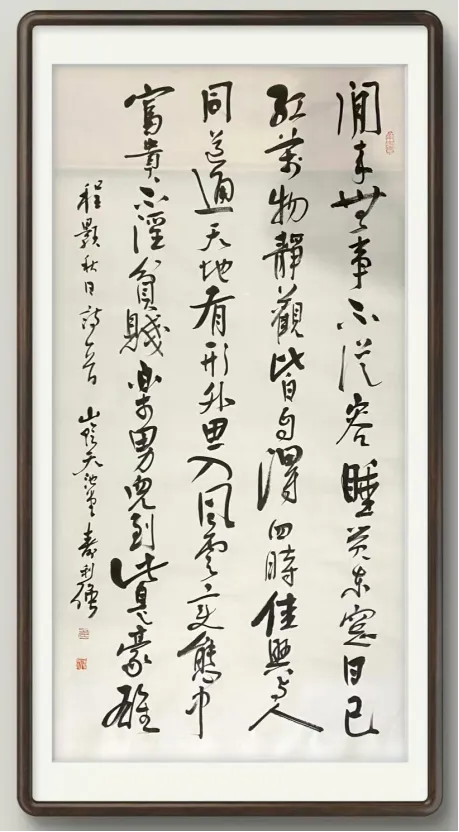 閒来無事不從容睡覺东窓日已
红萬物靜觀皆自得四時佳興与人
同道通天地有形外思入風雲变態中
富貴不淫貧賤樂男兒到此是豪雄
程顥秋日詩一首 山陰天池